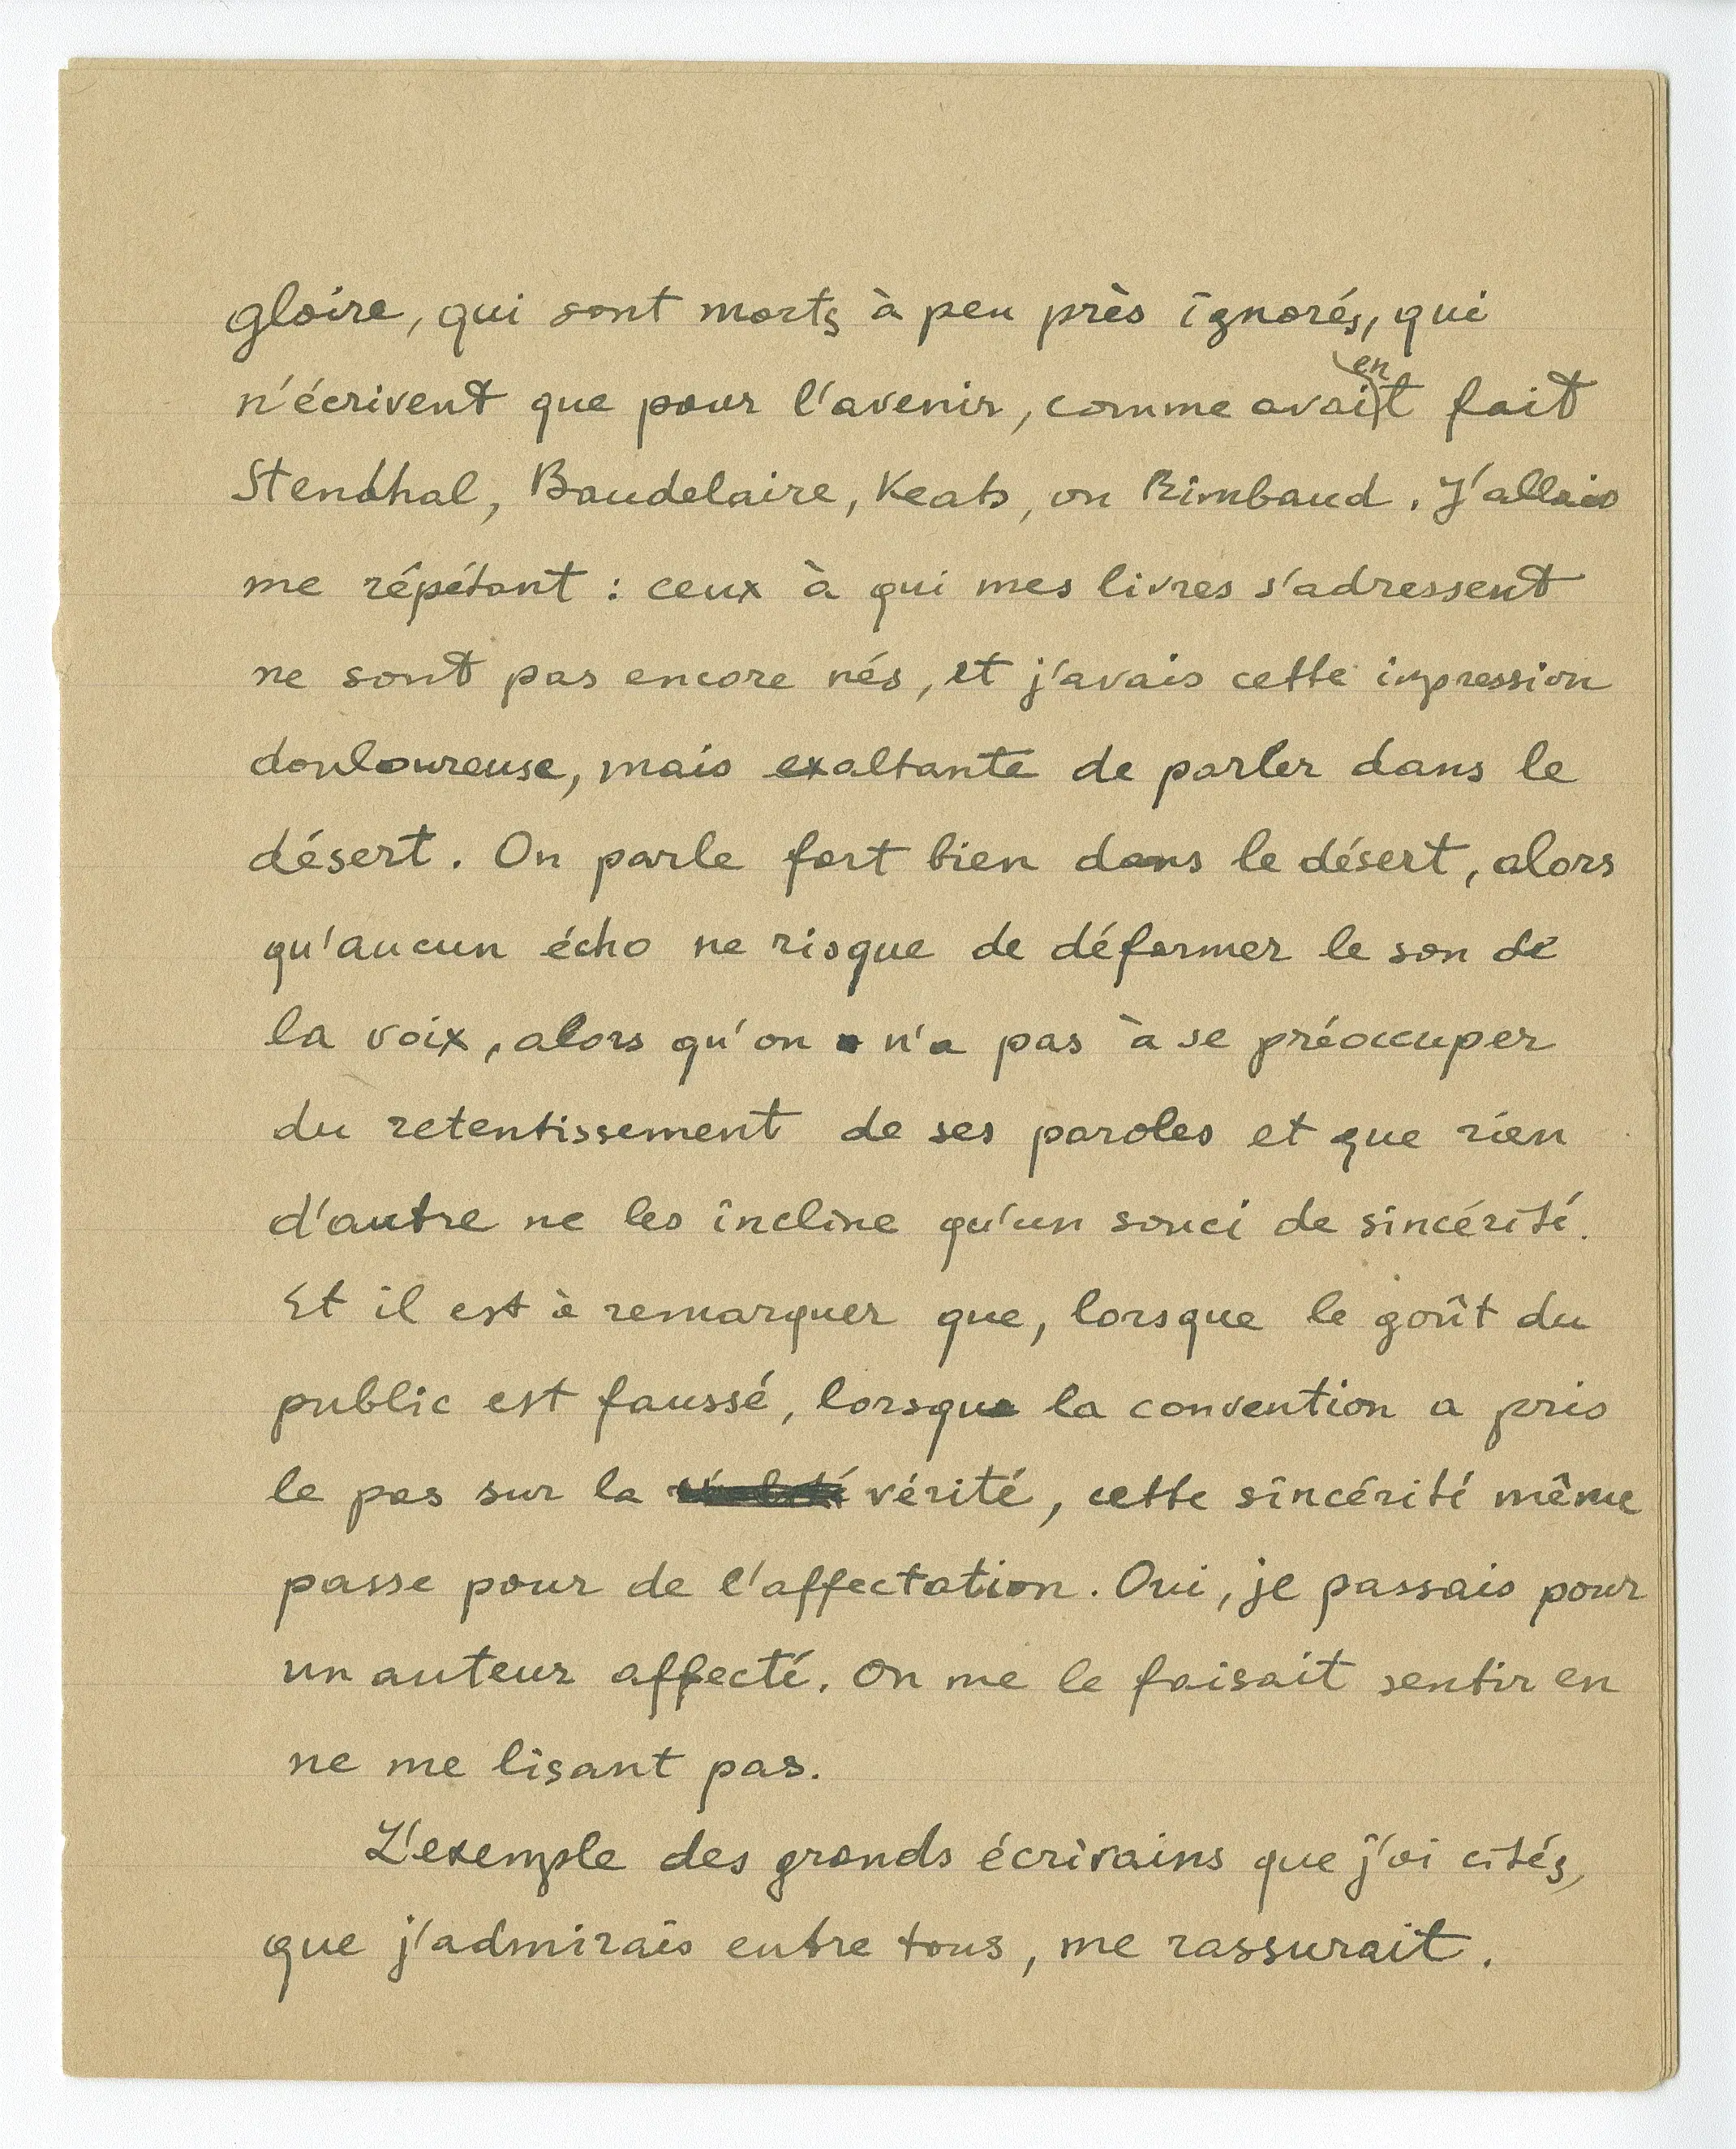 gloire, qui sont morts à peu près ignorés, qui
en
n'écrivent que pour l'avenir, comme avait fait
Stendhal, Baudelaire, Keats, ou Rimbaud. J'allais
me répétant : ceux à qui mes livres s'adressent
ne sont pas encore nés, et j'avais cette impression
douloureuse, mais exaltante de parler dans le
désert. On parle fort bien dans le désert, alors
qu'aucun écho ne risque de déformer le son de
la voix, alors qu'on n'a pas à se préoccuper
du retentissement de ses paroles et que rien
d'autre ne les incline qu'un souci de sincérité.
Et il est à remarquer que, lorsque le goût du
public est faussé, lorsque la convention a pris
le pas sur la vérité, cette sincérité même
passe pour de l'affectation. Oui, je passais pour
un auteur affecté. On me le faisait sentir en
ne me lisant pas.
L'exemple des grands écrivains que j'ai cités,
que j'admirais entre tous, me rassurait.